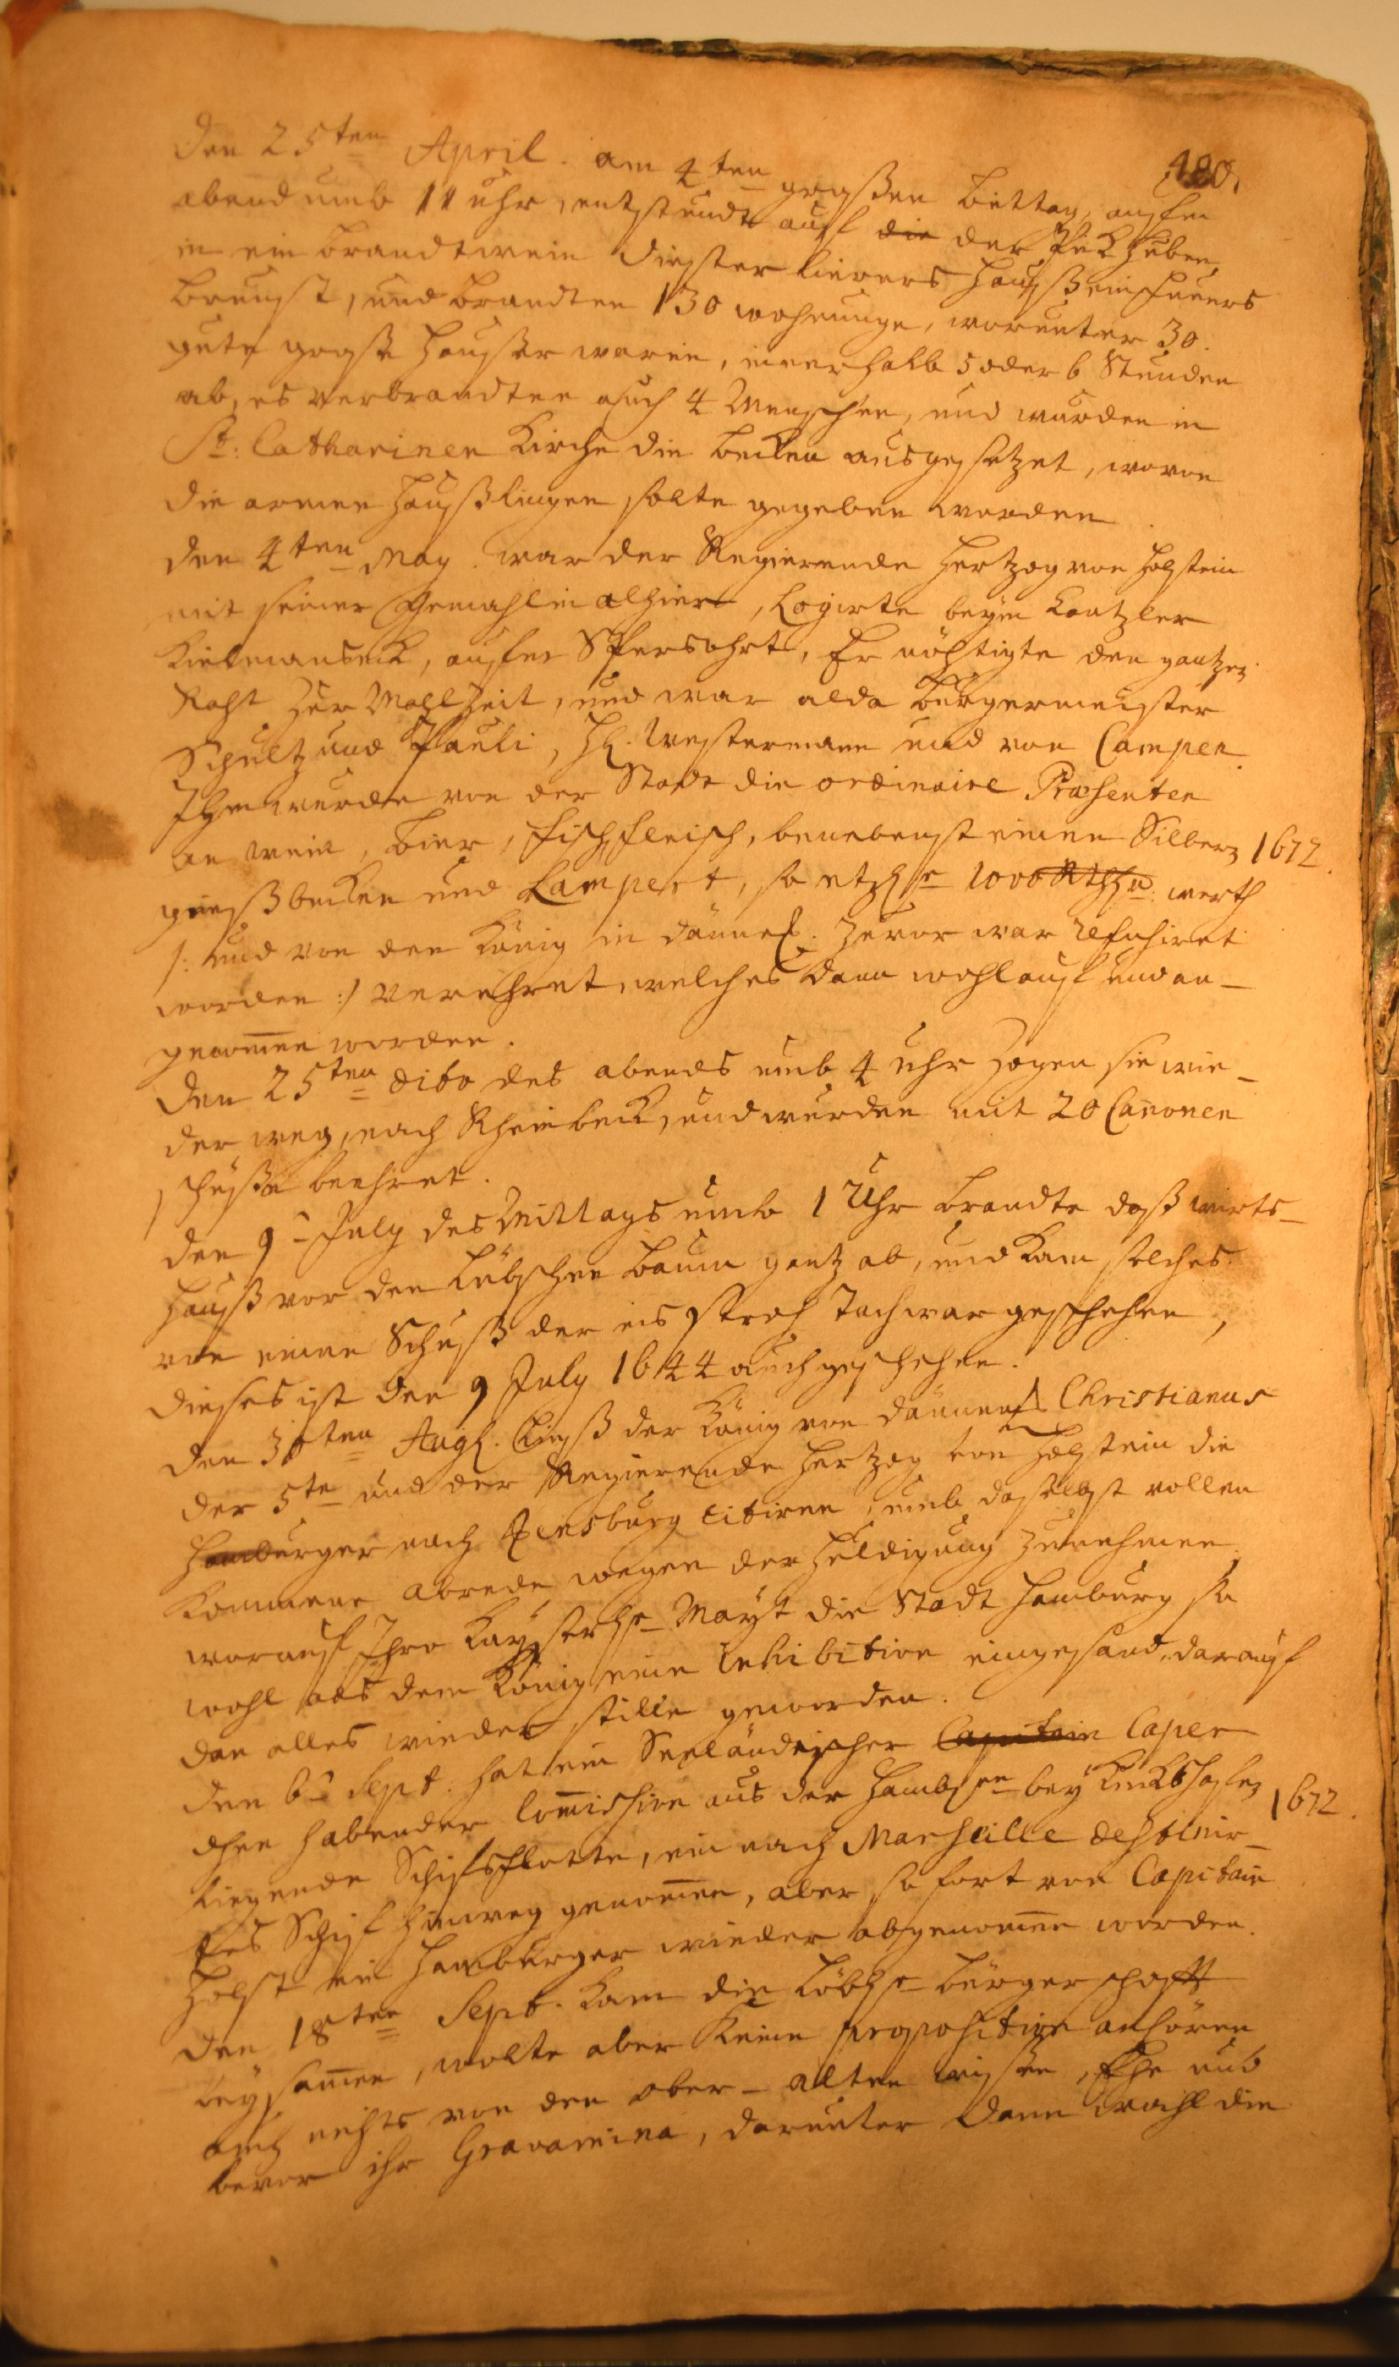 480.
Den 25ten April. am 4ten großen Bettag, auf den
abend umb 11 uhr, entstundt auf die der Pückhuben,
in ein brandtwein diester Sievers Hauß ein feuers
brunst, und brandten 130 wohnunge, worunter 30.
gute große Häußer waren, innerhalb 5 oder 6 Stunden
ab, es verbrandten auch 4 Menschen, und wurden in
St: Catharinen Kirche die Becken ausgesetzet, wovon
die armen Häußlingen solte gegeben werden
den 4ten May. war der Regierende Hertzog von Holstein
mit seiner Gemahlin alhier, Logirte beym Cantzler
Kielmanseck, auf der Speersohrt, Er nöhtigte den gantzen
Raht zur Mahlzeit, und war alda Bürgermeister
Schultz und Pauli, H. Westermann und von Campen.
Ihm wurden von der Stadt die ordinaire Præsenten
an wein, Bier, fisch, fleisch, benebenst einen Silbern 1672.
gießbecken und Lampert, so etzl. 1000 Rthlr. werth
/: und von den König in Dännem. zuvor war refusiret
worden :/ verehret, welches dann wohl auf und an-
genommen worden.
Den 25ten dito des abends umb 4 uhr zogen sie wie-
der weg, nach Rheinbeck, und wurden mit 20 Canonen
schüße beehret.
den 9t July des Mittags umb 1 Uhr brandte daß wirts-
hauß vor den Lübschen Baum gantz ab, und kam solches
von einen Schuß der ins Stroh Dach war geschehen,
dieses ist den 9 July 1644 auch geschehen.
den 30ten Augt. ließ der König von Dännem. Christianus
der 5te und der Regierende Hertzog von Holstein die
Hamburger nach Flensburg citiren, umb daselbst vollen
kommene abrede wegen der Huldigung zu nehmen
worauf Ihro Kayserl. Mayt die Stadt Hamburg so
wohl als dem König eine Inhibition eingesand, darauf
dan alles wieder stille geworden.
den 6t Sept. hat ein Seeländischer Capitain Caper
den habender Commission aus der Hamb. bey Kuckshafen 1672.
liegende Schifsflotte, ein nach Marseille destinir-
tes Schif hinweg genommen, aber so fort von Capitain
Holst ein Hamburger wieder abgenommen worden.
den 18ten Sept. kam die Löbl. bürgerschafft
beysammen, wolte aber keine proposition anhören
auch nichts von den ober-alten wißen, Ehe und
bevor ihr Gravamina, darunter dann wohl die